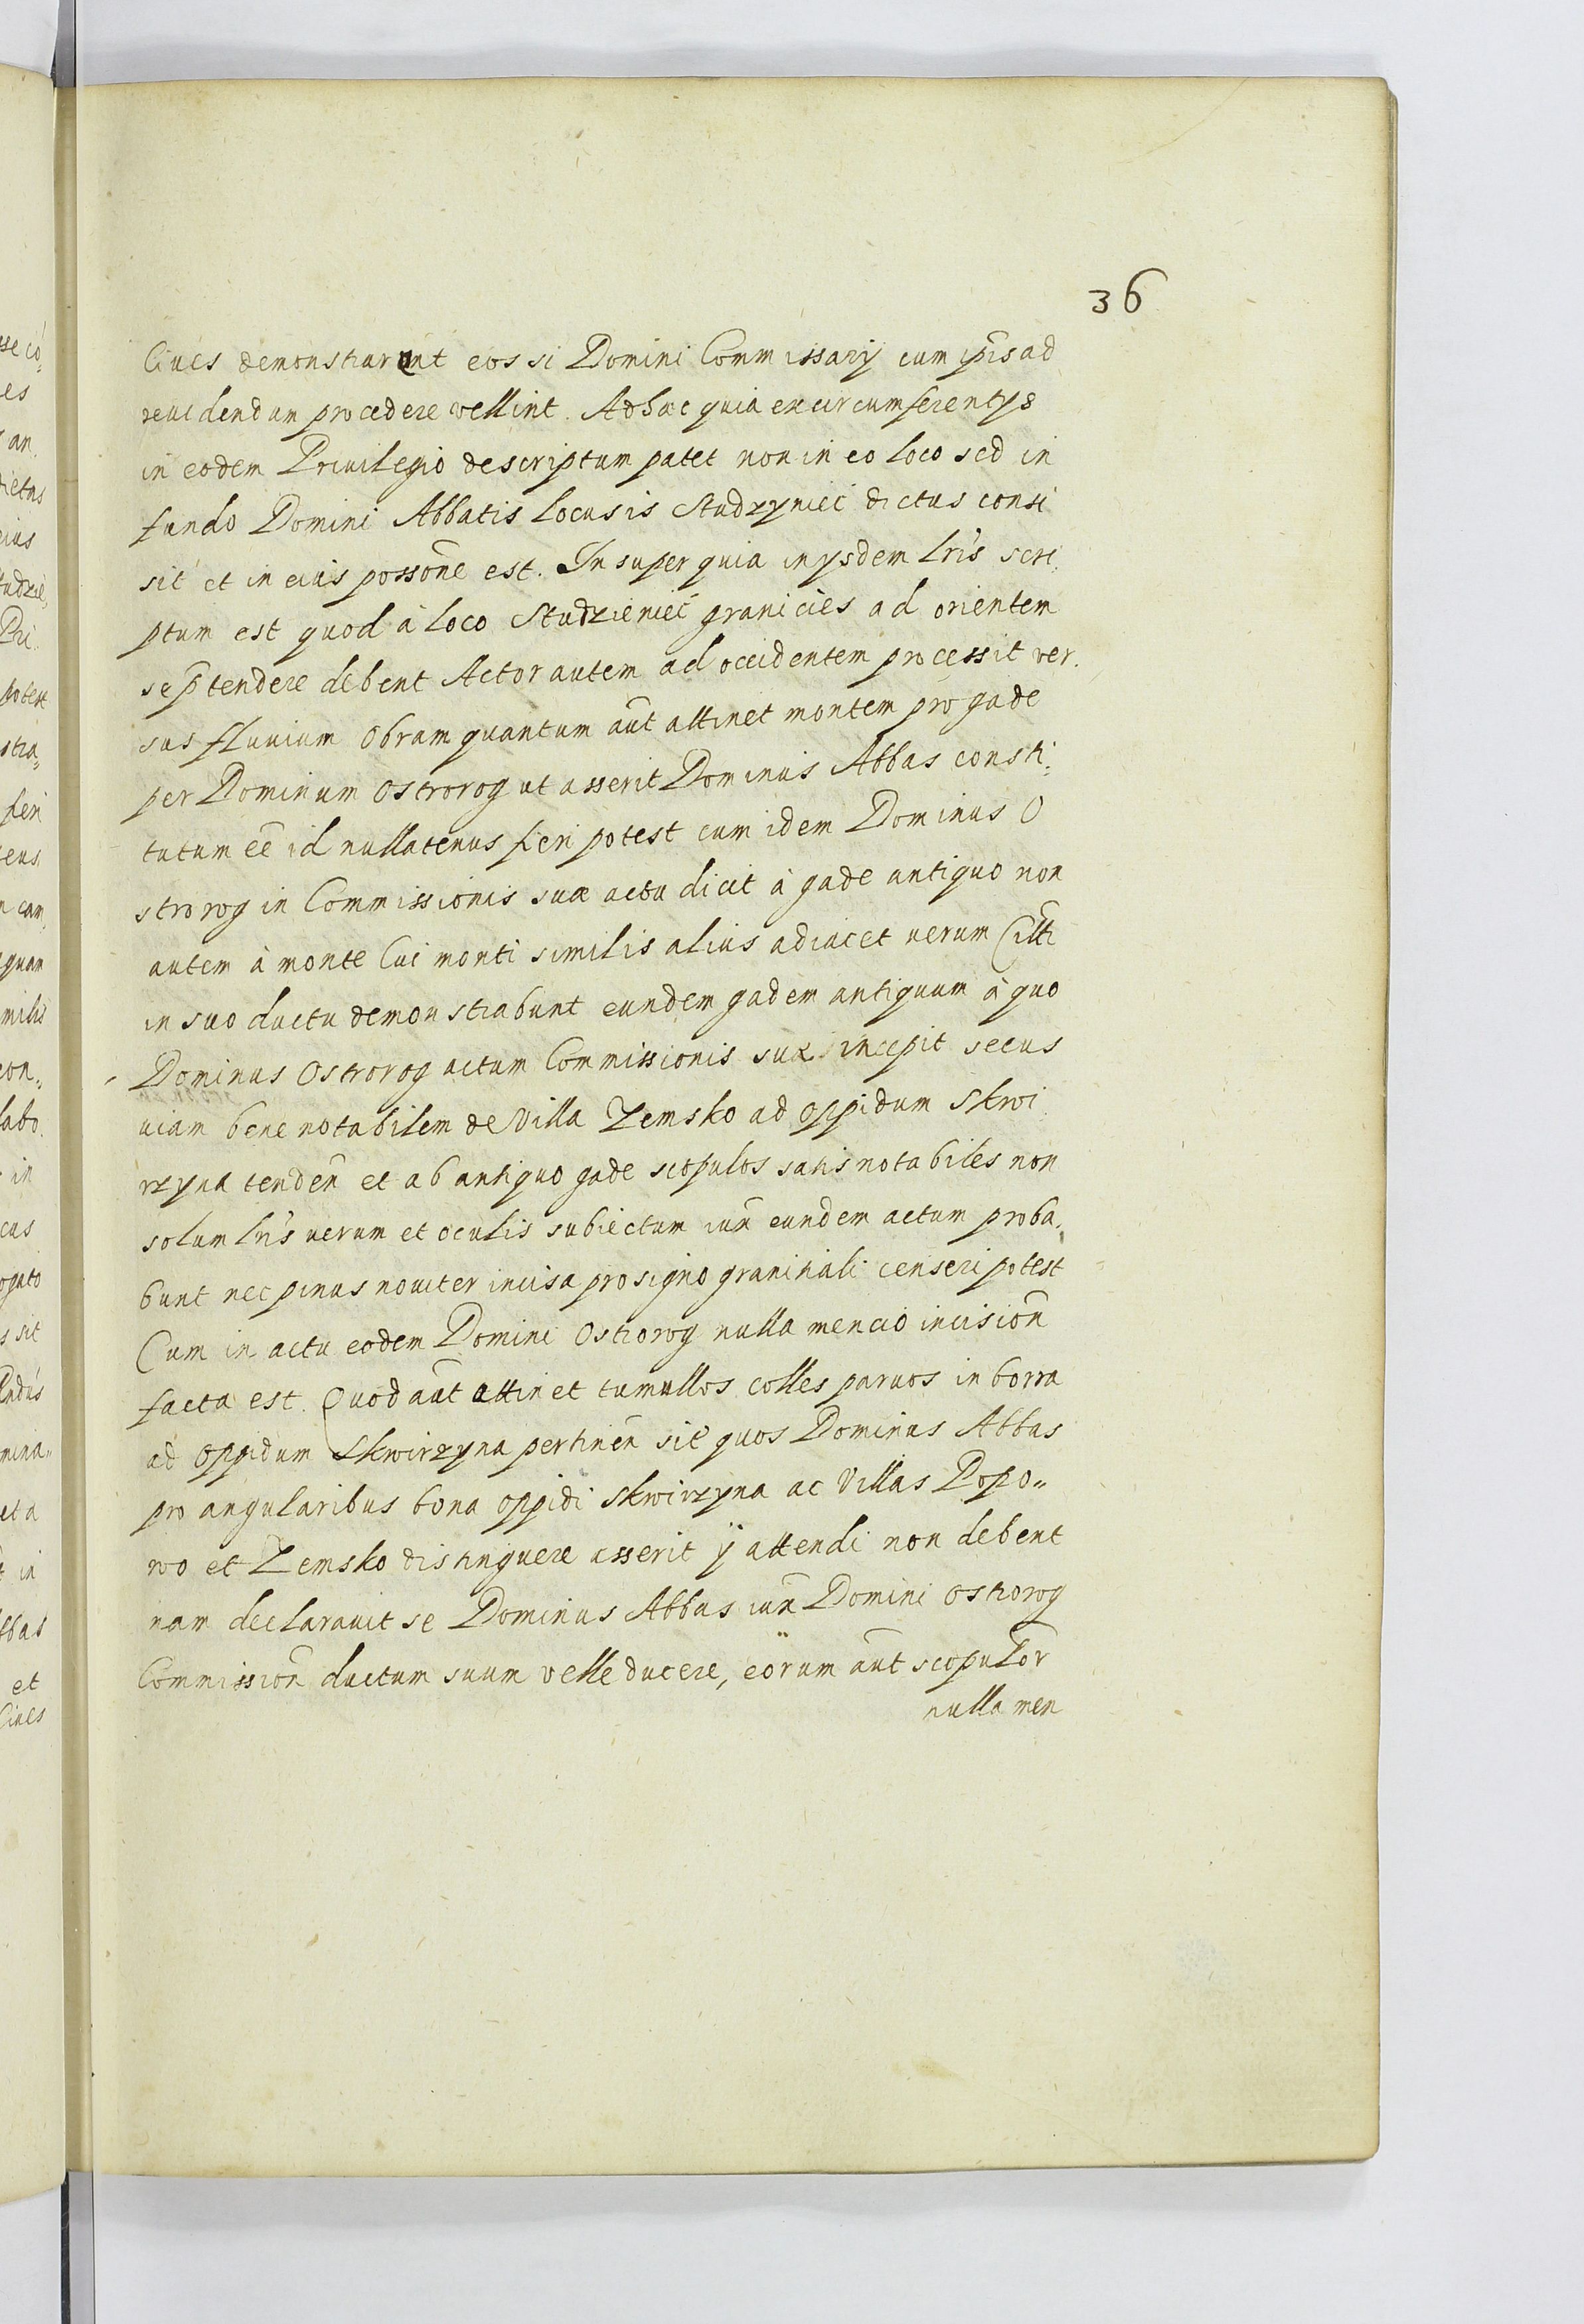 36
Ciues demonstrarunt eos si Domini Commissarij cum ipsis ad
reuidendum procedere vellint. Adhæc quia ex circumferentys
in eodem Priuilegio descriptum patet non in eo loco sed in
fundo Domini Abbatis locus is Studzyniec dictus consi
sit et in eius possone est. In super quia in ysdem lris scri,
ptum est quod à loco Studzieniec granicies ad orientem
se ptendere debent Actor autem ad occidentem processit ver,
sus fluvium Obram quantum aut attinet montem pro gade
per Dominum Ostrorog ut asserit Dominus Abbas consti,
tutum ee id nullatenus fieri potest cum idem Dominus O
strorog in Commissionis suæ actu dicit à gade antiquo non
autem à monte Cui monti similis alius adiacet uerum Citti
in suo ductu demonstrabunt eundem gadem antiquum à quo
Dominus Ostrorog actum Commissionis suæ incepit secus
uiam bene notabilem de Villa Zemsko ad oppidum Skwi
rzyna tenden et ab antiquo gade scopulos satis notabiles non
solum lris uerum et oculis subiectum iux eundem actum proba,
bunt nec pinus nouiter incisa pro signo graniciali censeri potest
Cum in actu eodem Domini Ostrorog nulla mencio incision
facta est. Quod aut attinet tumullos colles paruos in borra
ad oppidum Skwirzyna pertinen sit quos Dominus Abbas
pro angularibus bona oppidi Skwirzyna ac Villas Popo„
wo et Zemsko distinguere asserit ij attendi non debent
nam declarauit se Dominus Abbas iux Domini Ostrorog
Commission ductum suum velle ducere, eorum aut scopulor
nulla men